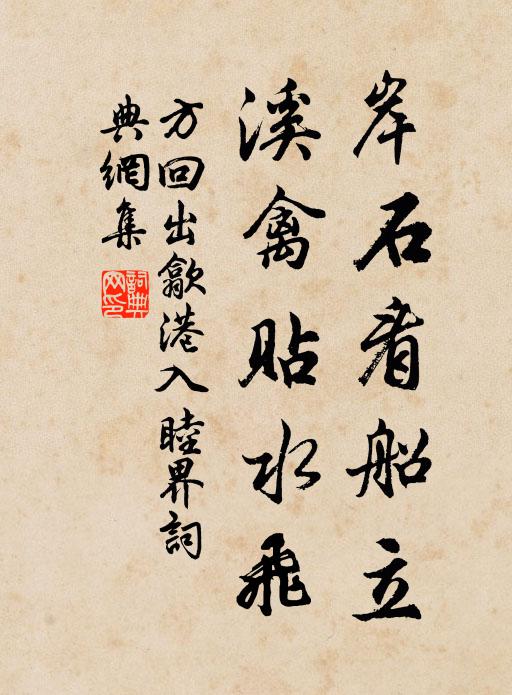 岸石看船立
溪禽貼水飛
方回出歙港入睦界詞
典網集
詞典
网印